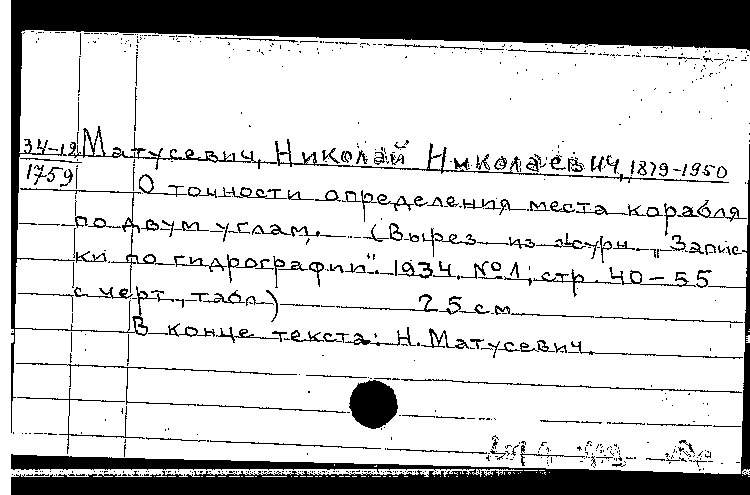 34-19 Матусевич, Николай Николаевич, 1879-1950
1759
О точности определения места корабля
по двум углам. (Вырез. из журн. „Запис-
ки по гидрографии". 1934. №1; стр. 40-55
с черт., табл.) 25 см
В конце текста: Н. Матусевич.